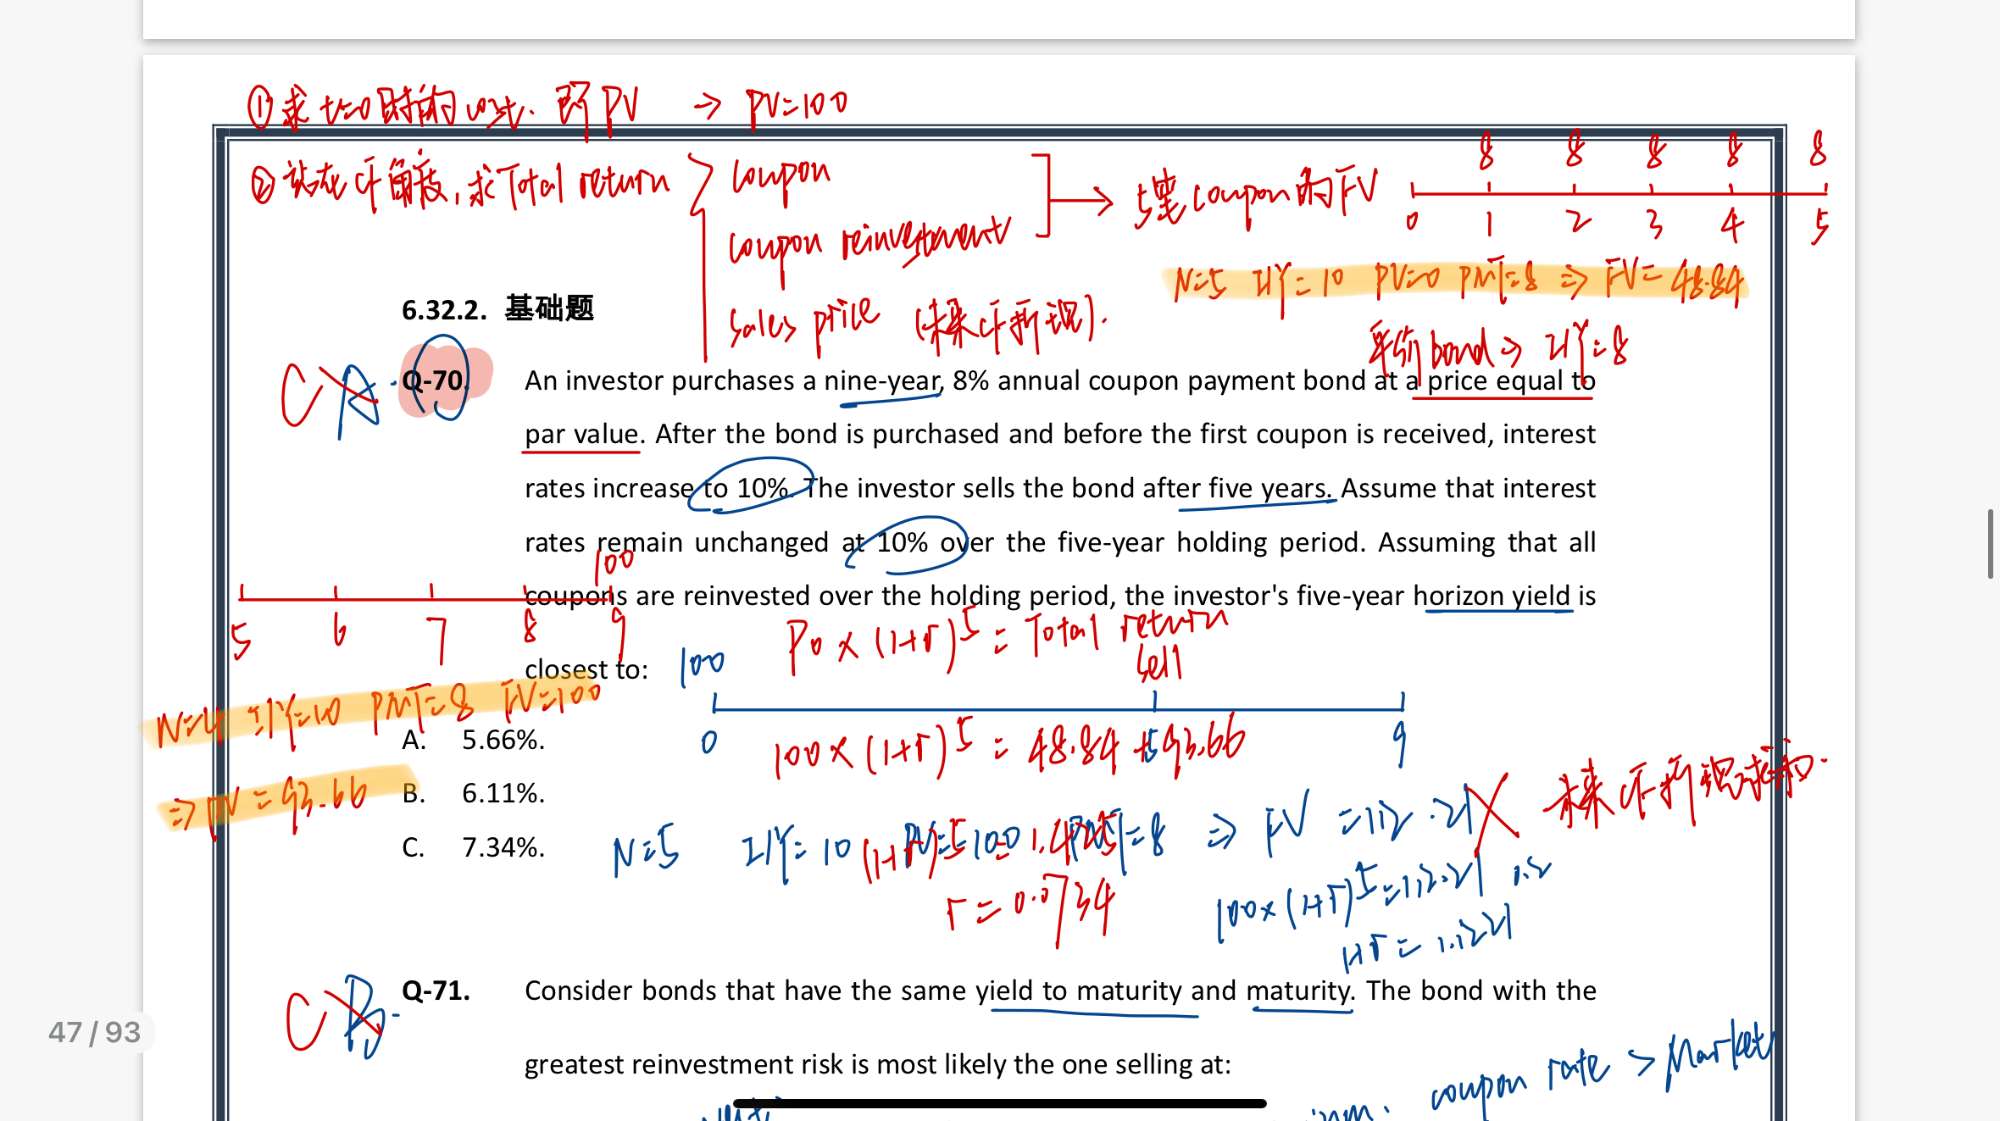 ①求t=0时的cost. 即PV → PV=100
②站在CF角度,求Total return
coupon
coupon reinvestment
→ 5笔coupon的FV
sales price (未来CF折现).
8 8 8 8 8
0 1 2 3 4 5
N=5 I/Y=10 PV=0 PMT=8 ⇒ FV=48.84
平价bond ⇒ I/Y=8
6.32.2. 基础题
C A.
Q-70. An investor purchases a nine-year, 8% annual coupon payment bond at a price equal to
par value. After the bond is purchased and before the first coupon is received, interest
rates increase to 10%. The investor sells the bond after five years. Assume that interest
rates remain unchanged at 10% over the five-year holding period. Assuming that all
coupons are reinvested over the holding period, the investor's five-year horizon yield is
closest to:
100
5 6 7 8 9
N=4 I/Y=10 PMT=8 FV=100
⇒ PV=93.66
P0 × (1+r)^5 = Total return
100 sell
0 5 9
100 × (1+r)^5 = 48.84 + 93.66
A. 5.66%.
B. 6.11%.
C. 7.34%.
(1+r)^5 = 1.425
r = 0.0734
N=5 I/Y=10 PV=-100 PMT=8 ⇒ FV=112.21
未来CF折现求和.
100×(1+r)^5=112.21 0.2
1+r = 1.1221
C B.
Q-71. Consider bonds that have the same yield to maturity and maturity. The bond with the
greatest reinvestment risk is most likely the one selling at:
coupon rate > Market
47 / 93